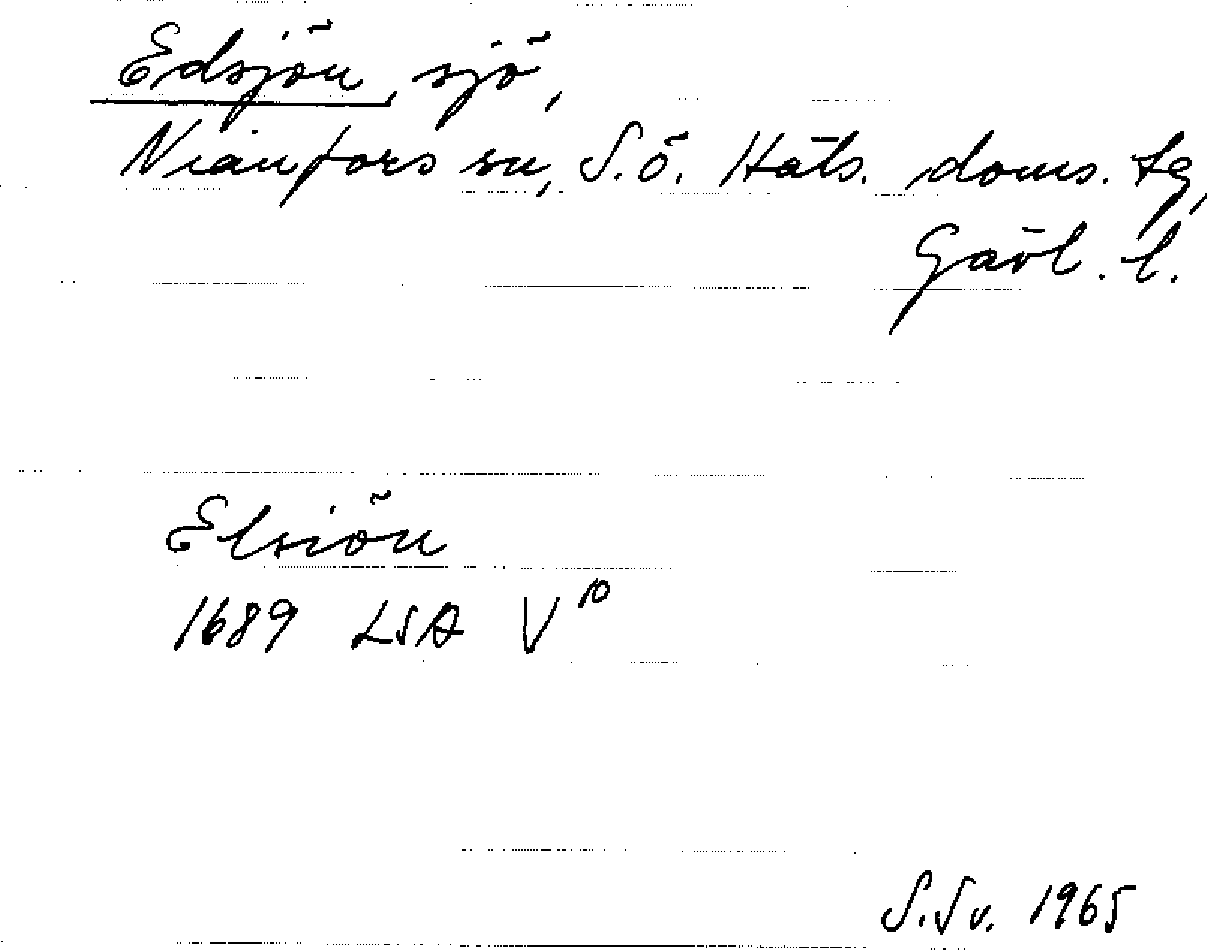 Edsjön, sjö,
Nianfors sn, S.ö. Häls. doms. tg,
Gävl. l.
Elsiön
1689 LSA V¹⁰
S.Sv. 1965